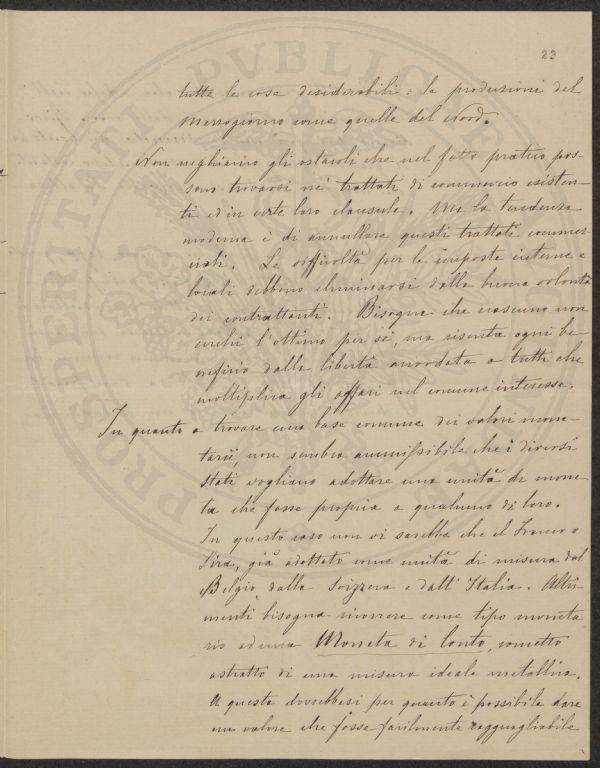 23
tutte le cose desiderabili: le produzioni del
Mezzogiorno come quelle del Nord.
Non neghiamo gli ostacoli che nel fatto pratico pos-
sono trovarsi ne' trattati di commercio esisten-
ti ed in certe loro clausule. Ma la tendenza
moderna è di annullare questi trattati commer-
ciali. Le difficoltà per le imposte interne e
locali debbono eliminarsi dalla buona volontà
dei contrattanti. Bisogna che ciascuno non
cerchi l'ottimo per sé, ma risenta ogni be-
neficio dalla libertà accordata a tutti che
moltiplica gli affari nel comune interesse.
In quanto a trovare una base comune dei valori mone-
tarii, non sembra ammissibile che i diversi
stati vogliano adottare una unità di mone-
ta che fosse propria a qualcuno di loro.
In questo caso non vi sarebbe che il Franco o
Lira, già adottato come unità di misura dal
Belgio, dalla Svizzera e dall'Italia. Altri-
menti bisogna ricorrere come tipo moneta
rio ad una Moneta di Conto, concetto
astratto di una misura ideale metallica.
A questa dovrebbesi per quanto è possibile dare
un valore che fosse facilmente ragguagliabile
PVBLICAE PROSPERITATI